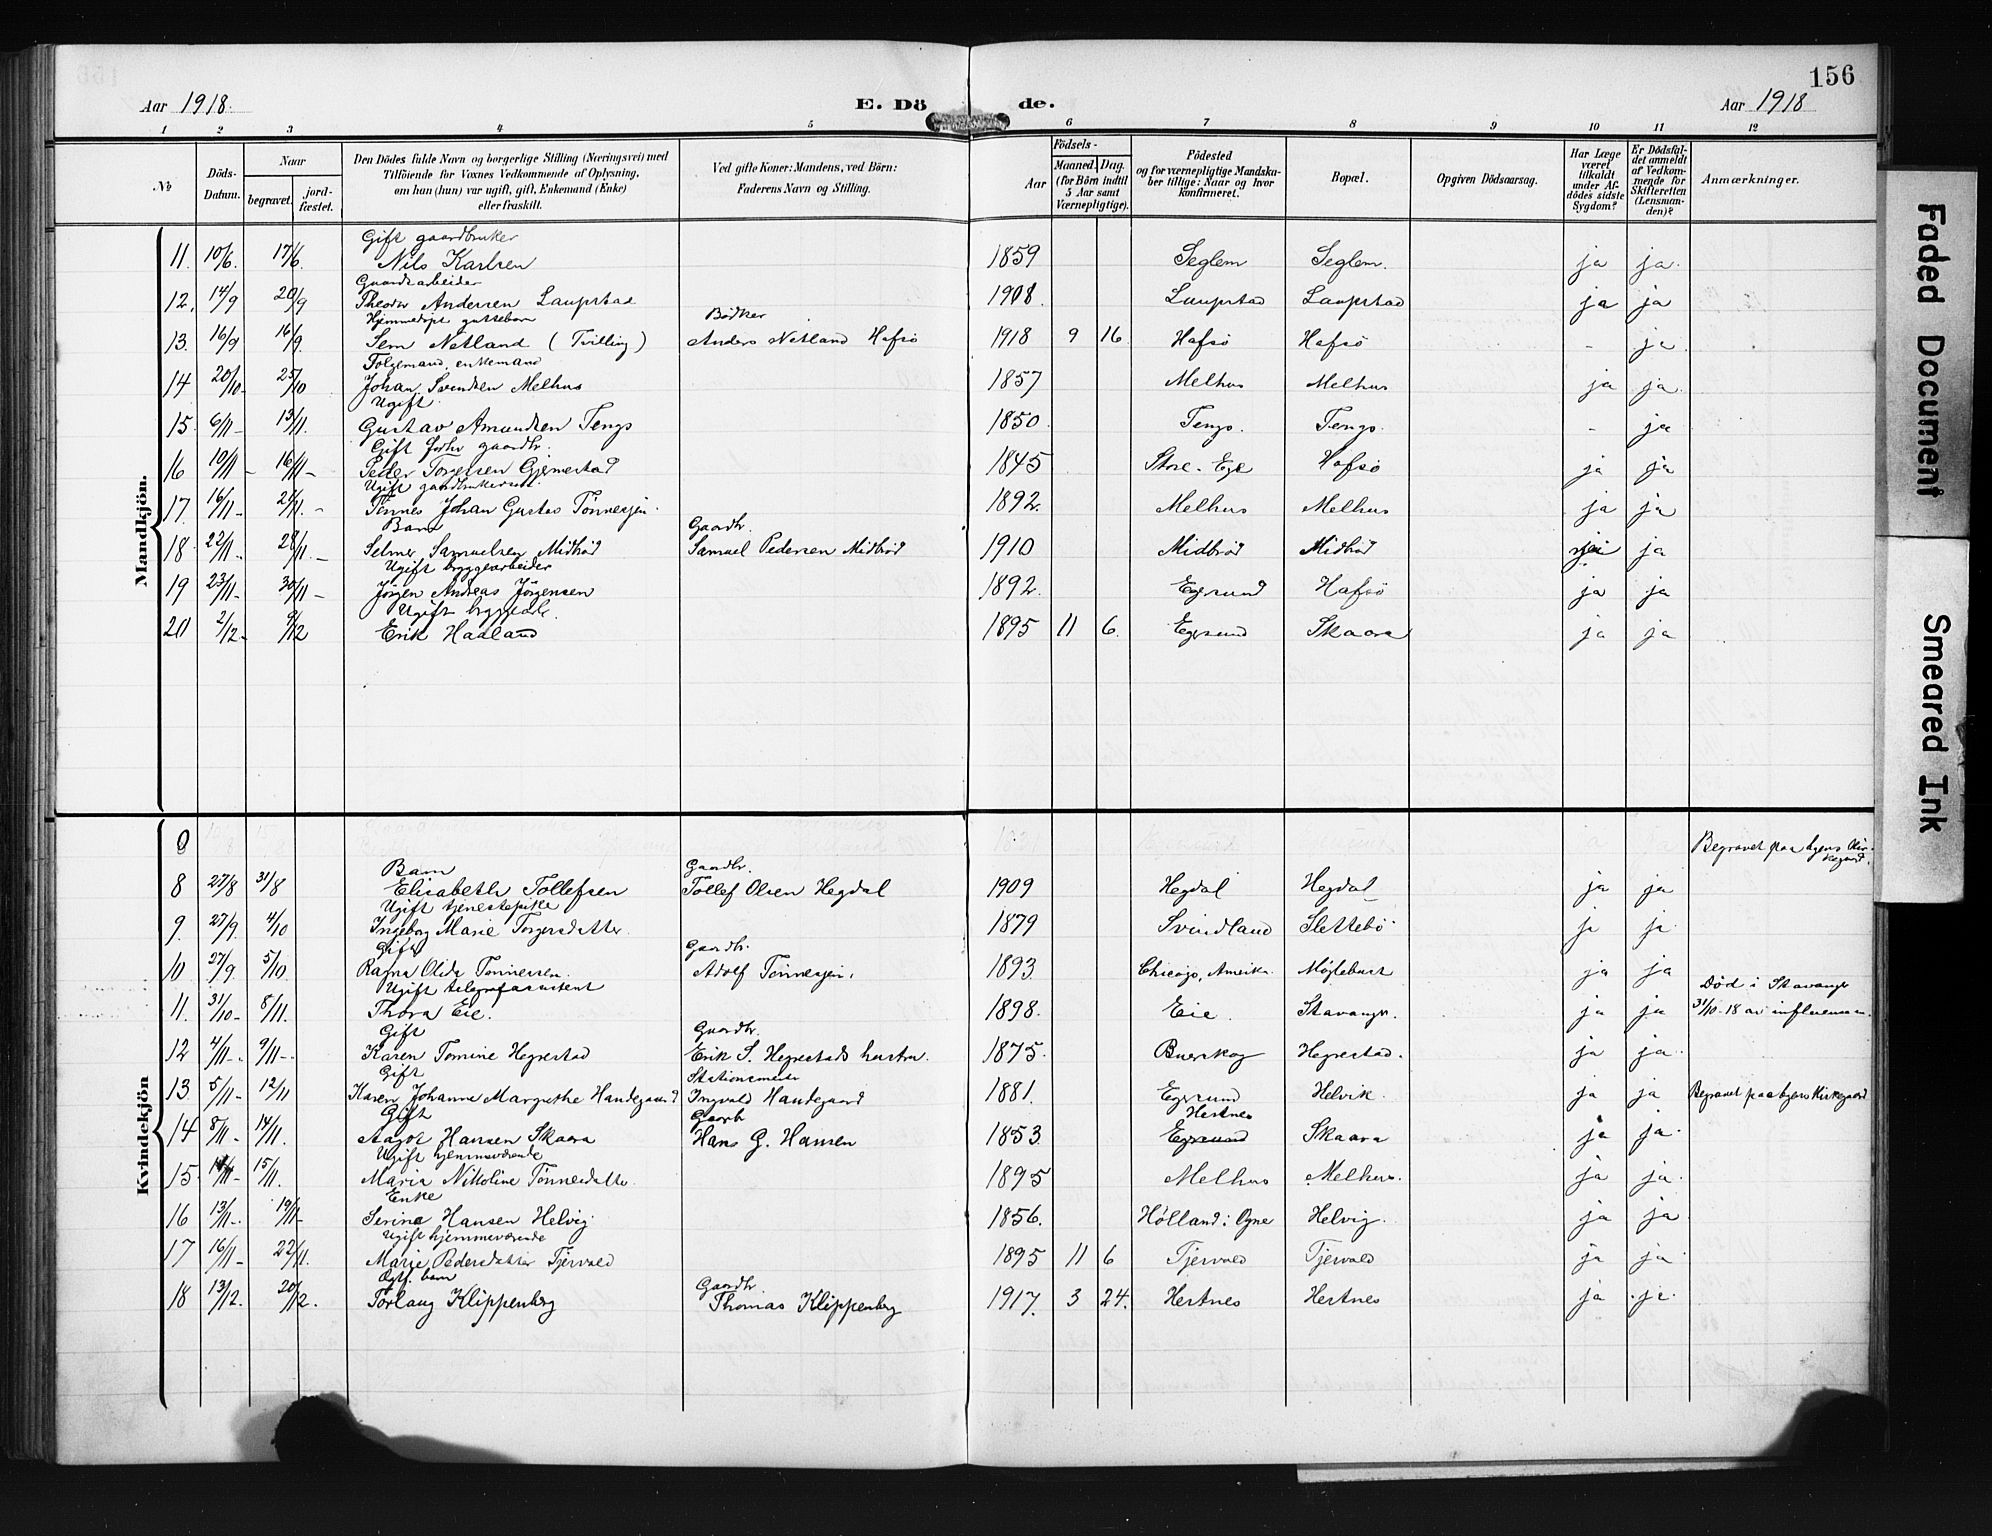 156
Aar 1918.
E. Dö de.
Aar 1918
1 2 3 4 5 6 7 8 9 10 11 12
№
Döds-Datum.
Naar
begravet.
jord-fæstet.
Den Dödes fulde Navn og borgerlige Stilling (Næringsvei) med
Tilföiende for Voxnes Vedkommende af Oplysning,
om han (hun) var ugift, gift, Enkemand (Enke)
eller fraskilt.
Ved gifte Koner: Mandens, ved Börn:
Faderens Navn og Stilling.
Födsels-
Aar
Maaned. Dag.
(for Börn indtil
5 Aar samt
Værnepligtige).
Födested
og for værnepligtige Mandska-
ber tillige: Naar og hvor
konfirmeret.
Bopæl.
Opgiven Dödsaarsag.
Har Læge
været
tilkaldt
under Af-
dödes sidste
Sygdom?
Er Dödsfal-
det anmeldt
af Vedkom-
mende for
Skifteretten
(Lensman-
den)?
Anmærkninger.
Mandkjön.
Gift gaardbruker
11. 10/6. 17/6. Nils Karlsen 1859 Seglem Seglem. ja ja.
Gaardsarbeider
12. 14/9 20/9 Theodor Andersen Laupstad 1908. Laupstad Laupstad ja ja
Hjemmedöpt guttebarn Bödker
13. 16/9 16/9. Sem Netland (Tvilling) Anders Netland Hafsö 1918 9 16. Hafsö Hafsö - ja.
Folgemand, enkemand
14 20/10- 25/10 Johan Svendsen Melhus 1857 Melhus Melhus ja ja.
Ugift.
15. 6/11- 13/11. Gustav Amundsen Tengs 1850. Tengs. Tengs. - ja
Gift forhv gaardbr.
16 10/11- 16/11- Peder Torgersen Gjermestad 1845 Store-Ege Hafsö ja ja
Ugift gaardbruker
17. 16/11- 24/11.- Tönnes Johan Gustav Tönnesen. 1892. Melhus Melhus ja ja
Barn Gaardbr.
18. 22/11- 28/11.- Selmer Samuelsen Midbröd Samuel Pedersen Midbröd 1910 Midbröd Midbröd nei ja
Ugift bryggearbeider
19 23/11- 30/11- Jörgen Andreas Jörgensen 1892. Egersund Hafsö ja ja
Ugift bryggearb.
20 2/12- 9/12 Erik Haaland 1895 11 6. Egersund Skaara ja ja
Kvindekjön
Begravet paa byens Kir-
kegaard.
Barn Gaardbr.
8 27/8 31/8 Elisabeth Tollefsen Tollef Olsen Hegdal 1909 Hegdal Hegdal ja ja
Ugift tjenestepike
9. 27/9. 4/10 Ingeborg Marie Torgersdatter. 1879 Svindland Slettebö ja ja
Gift Gaardbr.
10 27/9. 5/10 Ragna Olida Tönnessen. Adolf Tönnesen. 1893. Chicago, Amerika. Möglebust ja ja
Ugift telegrafassistent Död i Stavanger
11. 31/10- 8/11. Thora Eie. 1898. Eie. Stavanger. ja ja 31/10-18 av influensa.
Gift Gaardbr.
12 4/11-. 9/11-. Karen Tomine Hegrestad Erik S. Hegrestads hustru. 1875. Buerskog Hegrestad. ja ja.
Gift Stationsmester
13. 5/11- 12/11 Karen Johanne Margrethe Handegaard Ingvald Handegaard 1881. Egersund Helvik. ja ja Begravet paa byens kirkegaard
Gift Gaardb Hestnes
14 8/11- 14/11. Aagot Hansen Skaara Hans G. Hansen 1853. Egersund Skaara ja ja.
Ugift hjemmeværende
15. 11- 15/11. Maria Nikoline Tönnesdatter. 1895 Melhus Melhus. ja ja.
Enke
16 13/11-. 19/11- Serine Hansen Helvig. 1856. Hölland i Ogne Helvig. ja ja
Ugift hjemmeværende
17. 16/11- 22/11. Marie Pedersdatter Tjervald 1895 11 6 Tjervald Tjervald ja ja.
barn Gaardbr.
18 13/12. 20/12. Torlaug Klippenberg Thomas Klippenberg 1917. 3 24. Hestnes Hestnes ja ja.
Faded Document
Smeared Ink